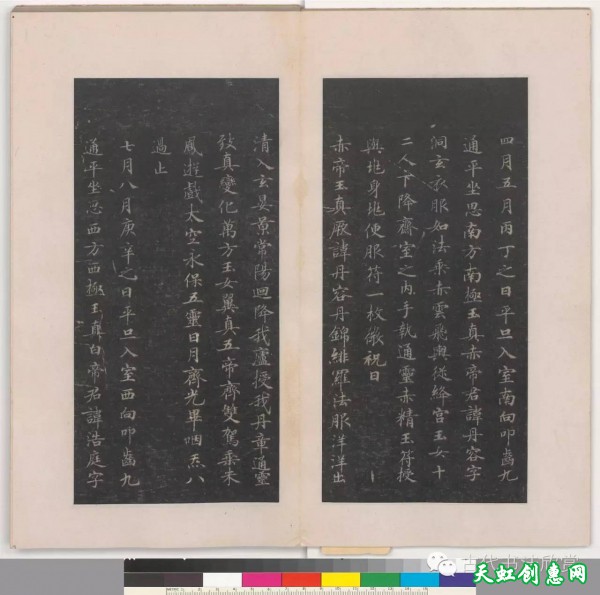 四月五月丙丁之日平旦入室南向叩齒九
通平坐思南方南極玉真赤帝君諱丹容字
洞玄衣服如法乘赤雲飛輿從絳宮玉女十
二人下降齋室之內手執通靈赤精玉符授
與兆身兆便服符一枚微祝曰
赤帝玉真厥諱丹容丹錦緋羅法服洋洋出
清入玄晏景常陽迴降我廬授我丹章通靈
致真變化萬方玉女翼真五帝齊雙駕乘朱
鳳遊戲太空永保五靈日月齊光畢咽炁八
過止
七月八月庚辛之日平旦入室西向叩齒九
通平坐思西方西極玉真白帝君諱浩庭字
古代书法欣赏
天虹创惠网